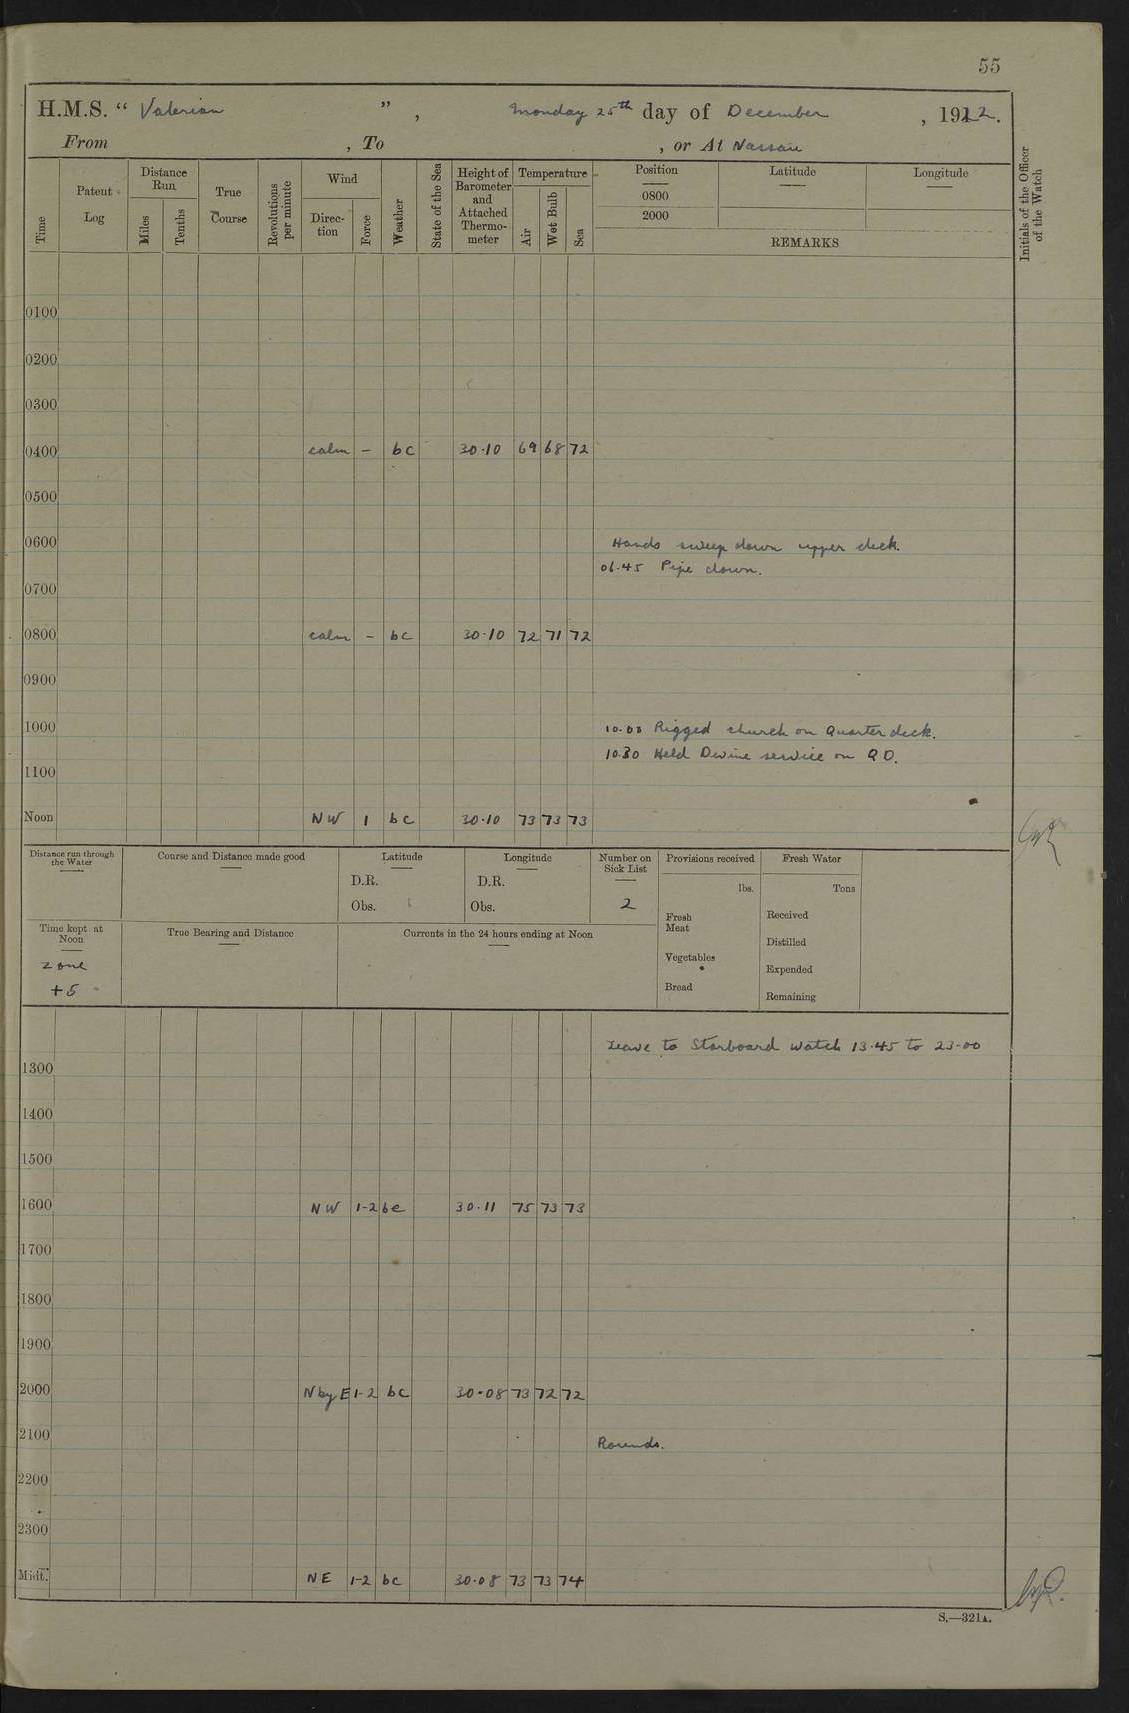 55
H.M.S. “ Valerian ”, Monday 25th day of December, 1922.
From , To , or At Nassau
Time
Patent Log
Distance Run
Miles
Tenths
True Course
Revolutions per minute
Wind
Direction
Force
Weather
State of the Sea
Height of Barometer and Attached Thermometer
Temperature
Air
Wet Bulb
Sea
Position
0800
2000
Latitude
Longitude
REMARKS
Initials of the Officer of the Watch
0100
0200
0300
0400 calm - bc 30.10 69 68 72
0500
0600 Hands sweep down upper deck.
06.45 Pipe down.
0700
0800 calm - bc 30.10 72 71 72
0900
1000 10.00 Rigged church on Quarter deck.
10.30 Held Devine service on QD.
1100
Noon NW 1 bc 30.10 73 73 73
Distance run through the Water
Course and Distance made good
Latitude
D.R.
Obs.
Longitude
D.R.
Obs.
Number on Sick List
2
Provisions received
lbs.
Fresh Meat
Vegetables
Bread
Fresh Water
Tons
Received
Distilled
Expended
Remaining
Time kept at Noon
Zone
+5
True Bearing and Distance
Currents in the 24 hours ending at Noon
Leave to Starboard watch 13.45 to 23.00
1300
1400
1500
1600 NW 1-2 bc 30.11 75 73 73
1700
1800
1900
2000 N by E 1-2 bc 30.08 73 72 72
2100 Rounds.
2200
2300
Midt. NE 1-2 bc 30.08 73 73 74
S.—321A.